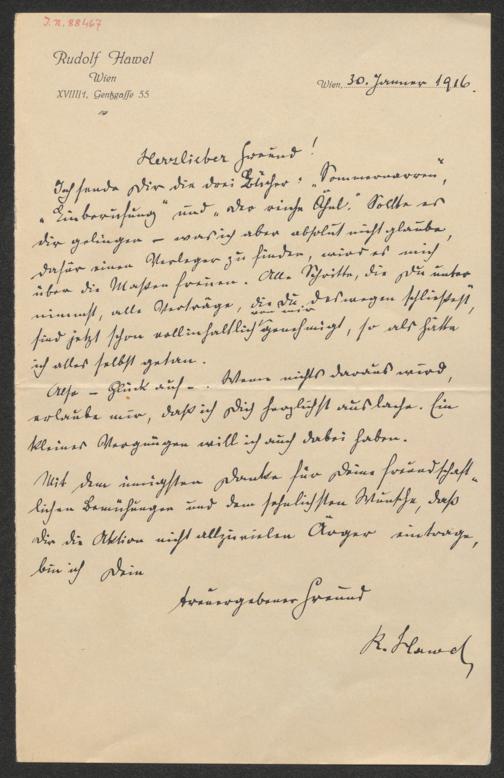 J.N. 88467
Rudolf Hawel
Wien
XVIII/1, Gentzgasse 55
Wien, 30. Jänner 1916.
Herzlieber Freund!
Ich sende Dir die drei Bücher: „Sommernarren",
„Einberufung" und „Der reiche Ähnl." Sollte es
dir gelingen – was ich aber absolut nicht glaube,
dafür einen Verleger zu finden, wird es mich
über die Maßen freuen. Alle Schritte, die Du unter
nimmst, alle Verträge, die Du deswegen schließest,
sind jetzt schon vollinhaltlich von mir genehmigt, so als hätte
ich alles selbst getan.
Also – Glück auf –. Wenn nichts daraus wird,
erlaube mir, daß ich Dich herzlichst auslache. Ein
kleines Vergnügen will ich auch dabei haben.
Mit dem innigsten Danke für Deine freundschaft-
lichen Bemühungen und dem sehnlichsten Wunsche, daß
Dir die Aktion nicht allzuvielen Ärger eintrage,
bin ich Dein
treuergebener Freund
R. Hawel